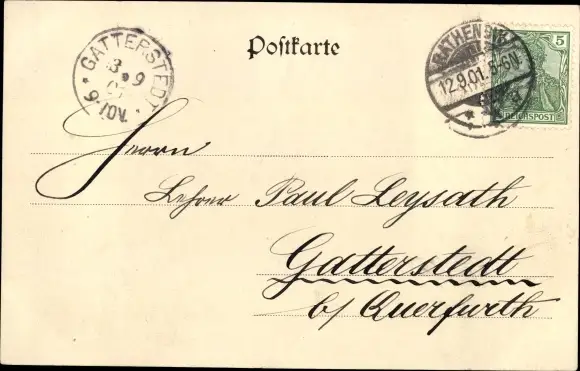 Postkarte
GATTERSTEDT
13 9
01
6-7 V.
12.9.01. 5-6N.
5
REICHSPOST
Herrn
Lehrer Paul Leysath
Gatterstedt
b/ Querfurth